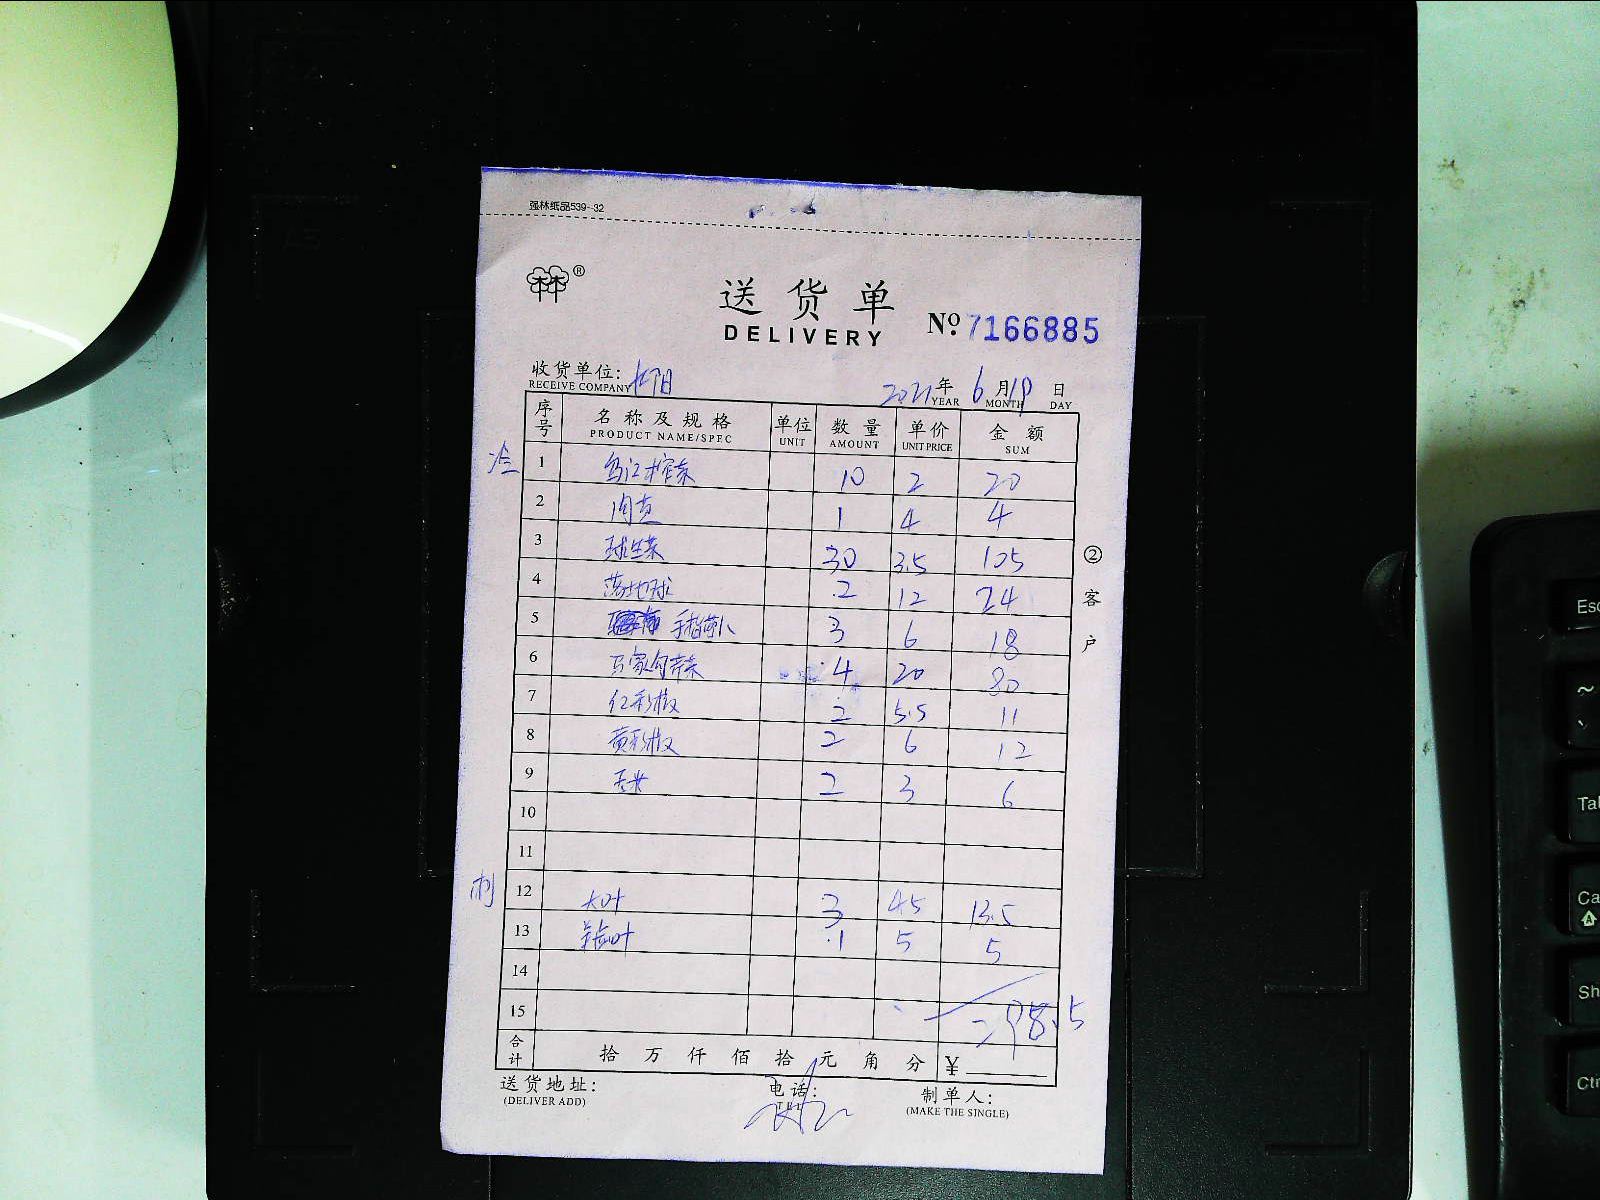 强林纸品539-32
林®
送货单
DELIVERY
No. 7166885
收货单位:
RECEIVE COMPANY
2021年 6月19日
YEAR MONTH DAY
序号 名称及规格 单位 数量 单价 金额
PRODUCT NAME/SPEC UNIT AMOUNT UNIT PRICE SUM
冷
1 乌江榨菜 10 2 20
2 肉蔻 1 4 4
3 球生菜 30 3.5 105
4 落地球 2 12 24
5 手指 3 6 18
6 20 80 4
7 红彩椒 2 5.5 11
8 黄彩椒 2 6 12
9 玉米 2 3 6
10
11
刺
12 大叶 3 4.5 13.5
13 叶 1 5 5
14
15 298.5
合计 拾万仟佰拾元角分 ¥
送货地址: 电话: 制单人:
(DELIVER ADD) TEL (MAKE THE SINGLE)
②客户
Esc
~
Tab
Ca
Sh
Ctr